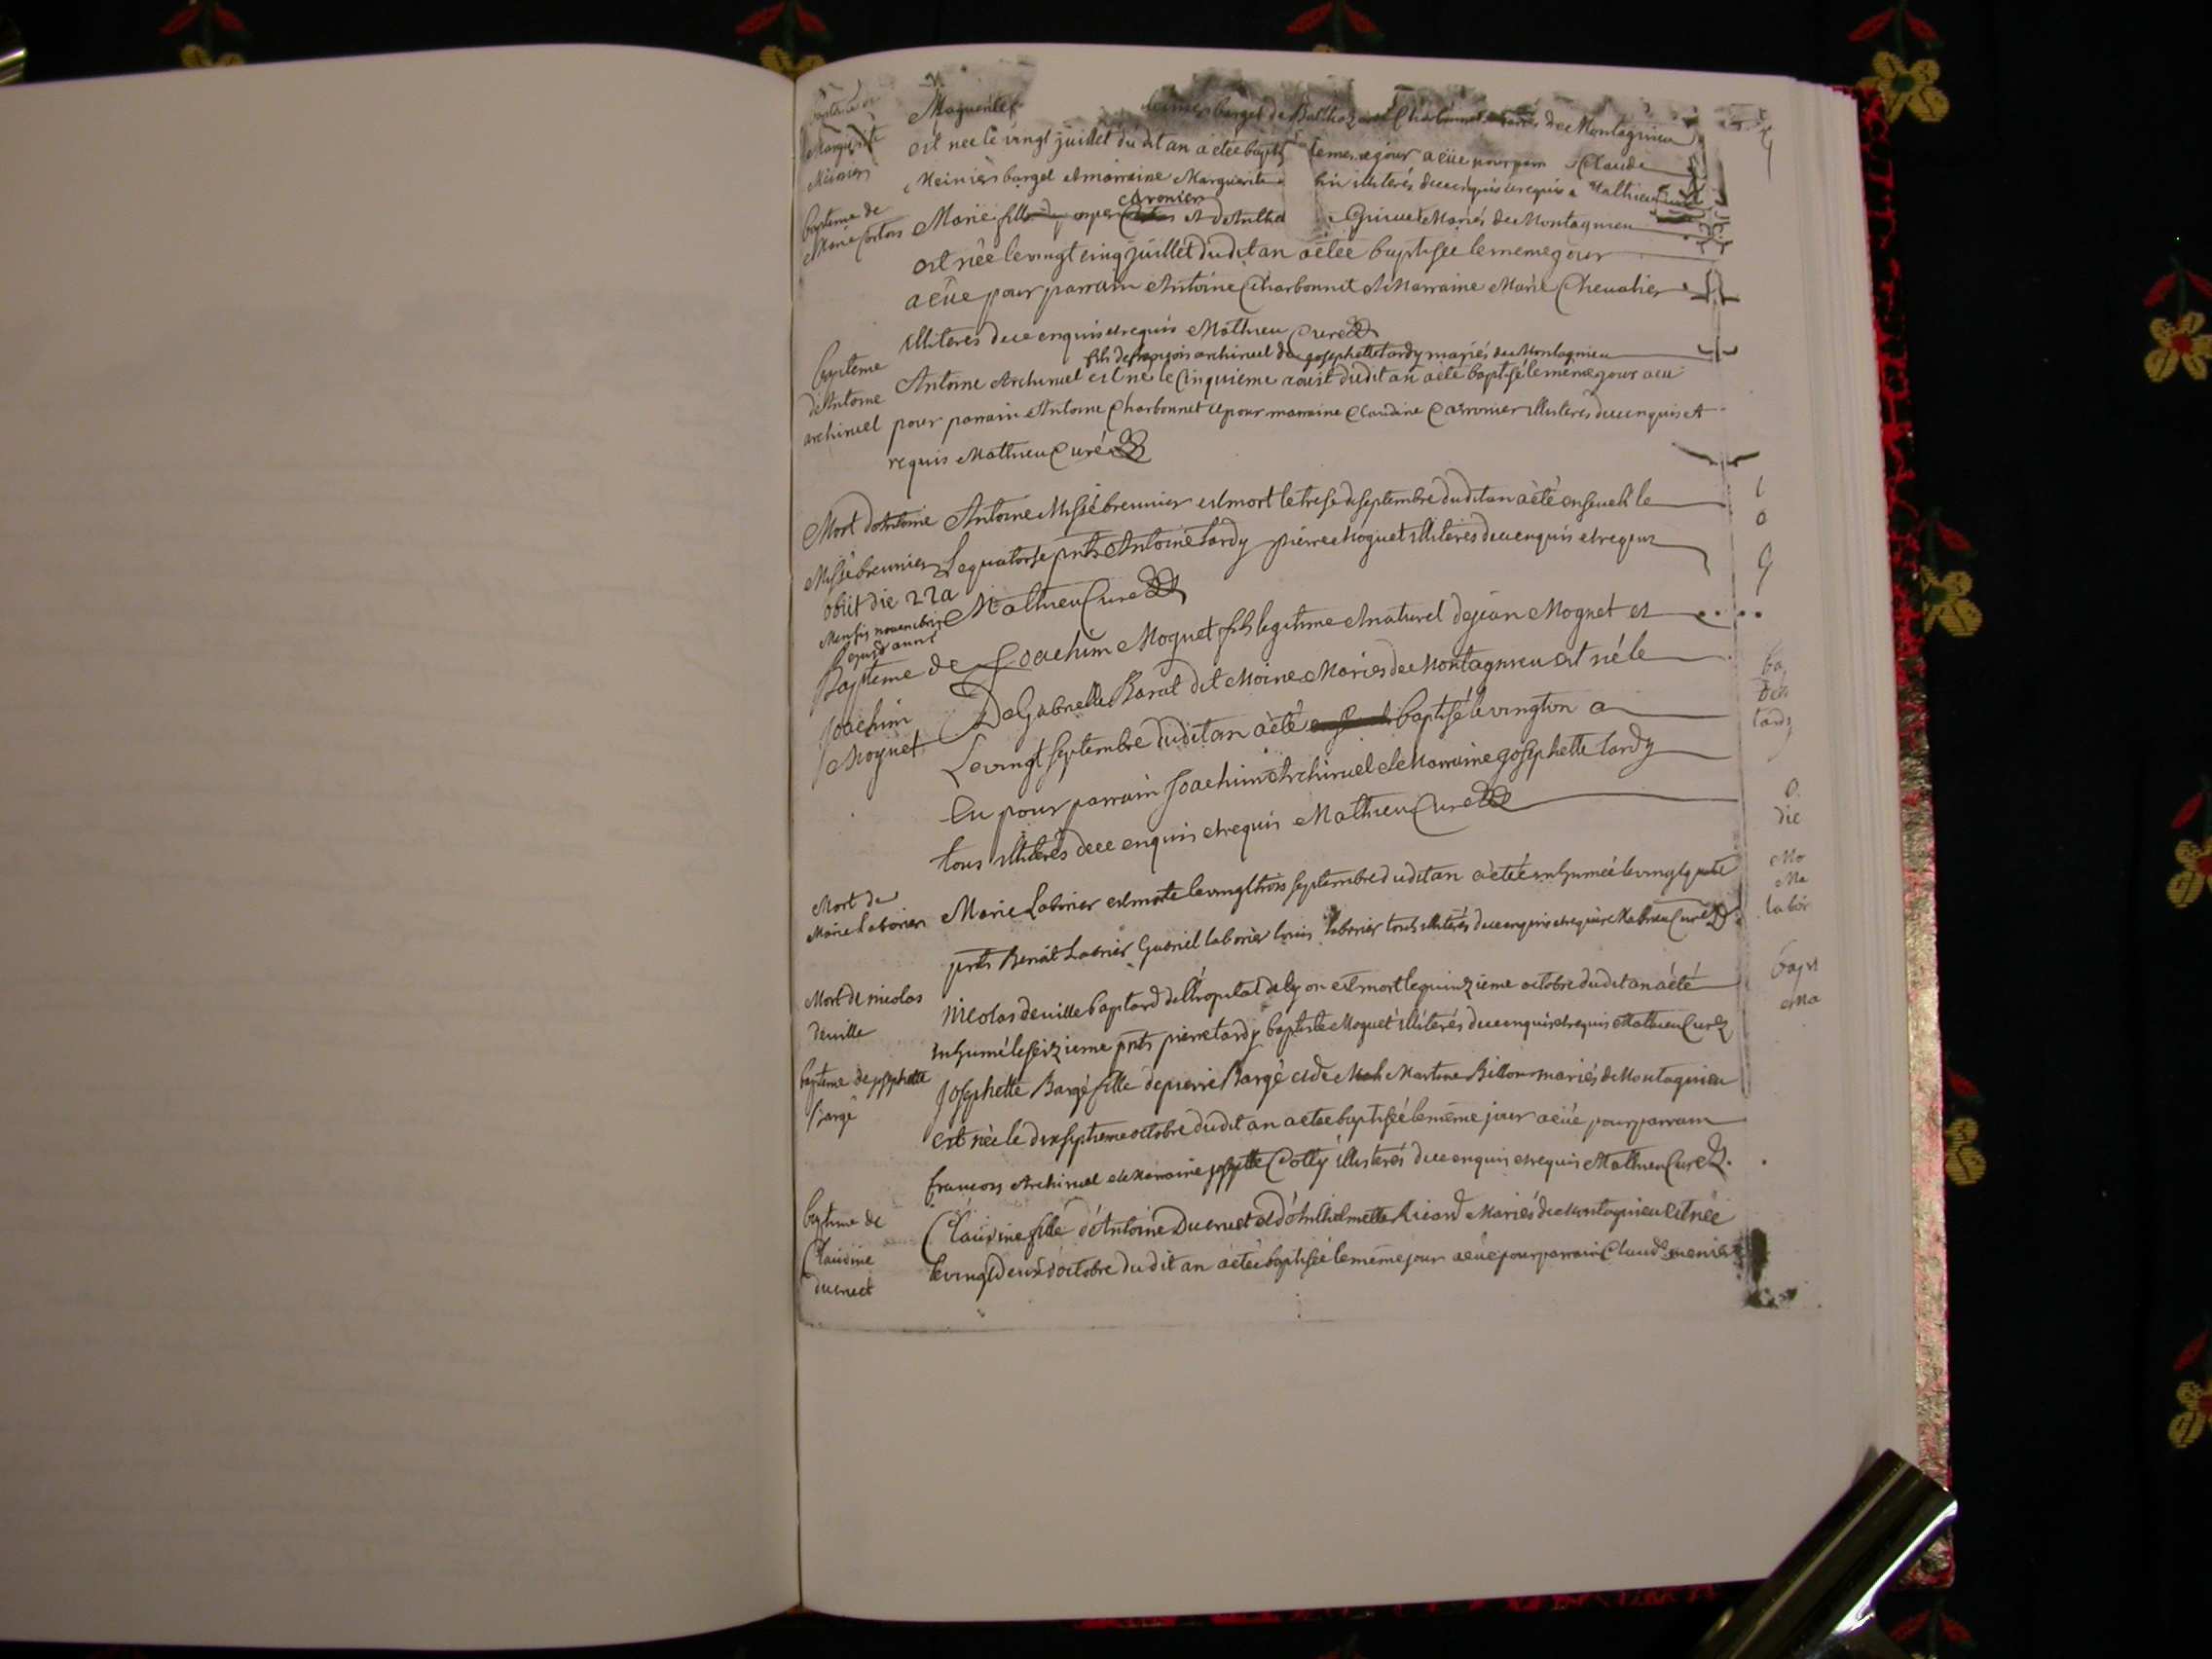 Marguerite
Meiniers
Marguerite meinier bargel de Balthazard Charbonnet mariés de Montagnieu
est neé le vingt juillet dudit an a eté bapti leme jour a eüe pour parn Claude
Meiniers bargel et marraine Marguerite illiterés de ce enquis et requis Mathieu Curé
bapteme de
Marie
caronier
Marie fille et dAnthel Gricuet Mariés de Montagnieu
est neé le vingt cinq juillet dudit an a eteé baptisee le meme jour
a eüe pour parrain Antoine Charbonnet et Marraine Marie Chevalier
illiteres de ce enquis et requis Mathieu Curé
baptême
d'Antoine
archiruel
fils de françois archiruel de josephette tardy mariés de Montagnieu
Antoine Archiruel est né le Cinquieme aoust dudit an a eté baptisé le meme jour a eu
pour parrain Antoine Charbonnet et pour marraine Claudine Carronier illiteres de ce enquis et
requis Mathieu Curé
Mort d'Antoine
Missébreunier
obiit die 22a
Mensis novembris
Antoine Missébreunier est mort le trese de septembre dudit an a eté enseveli le
Le quatorse pnts Antoine tardy pierre Moguet illiteres de ce enquis et requis
Mathieu Curé
Bapteme de
Joachim
Moguet
Joachim Moguet fils legitime et naturel de jean Moguet et
De Gabrielle Barat dit Moine Mariés de Montagnieu est né le
Le vingt septembre dudit an a eté baptisé le vingt un a
Eu pour parrain Joachim Archiruel et Marraine josephette tardy
tous illiterés de ce enquis et requis Mathieu Curé
Mort de
Marie Laborier
Marie Laborier est morte le vingt trois septembre dudit an a eteé inhumeé le vingt quatre
pnts Benoit Laborier Gabriel laborier louis laborier tous illiterés de ce enquis et requis Mathieu Curé
Mort de nicolas
deville
nicolas deville baptard de l'hopital de lyon est mort le quinzieme octobre dudit an a eté
inhumé le seizieme pnts pierre tardy baptiste Moguet illiterés de ce enquis et requis Mathieu Curé
bapteme de josephette
Bargé
Josephette Bargé fille de pierre Bargé et de Martine Billon mariés de Montagnieu
est neé le dix septieme octobre dudit an a eteé baptiseé le même jour a eüe pour parrain
francois Archiruel et Marraine josephette Cotty illiterés de ce enquis et requis Mathieu Curé
bapteme de
Claudine
ducruet
Claudine fille d'Antoine Ducruet et d'Anthelmette Ricard Mariés de Montagnieu est neé
le vingt deux d'octobre du dit an a eteé baptiseé le même jour a eüe pour parrain Claude menier
tardy
die
Mo
Ma
labor
bapt
Ma